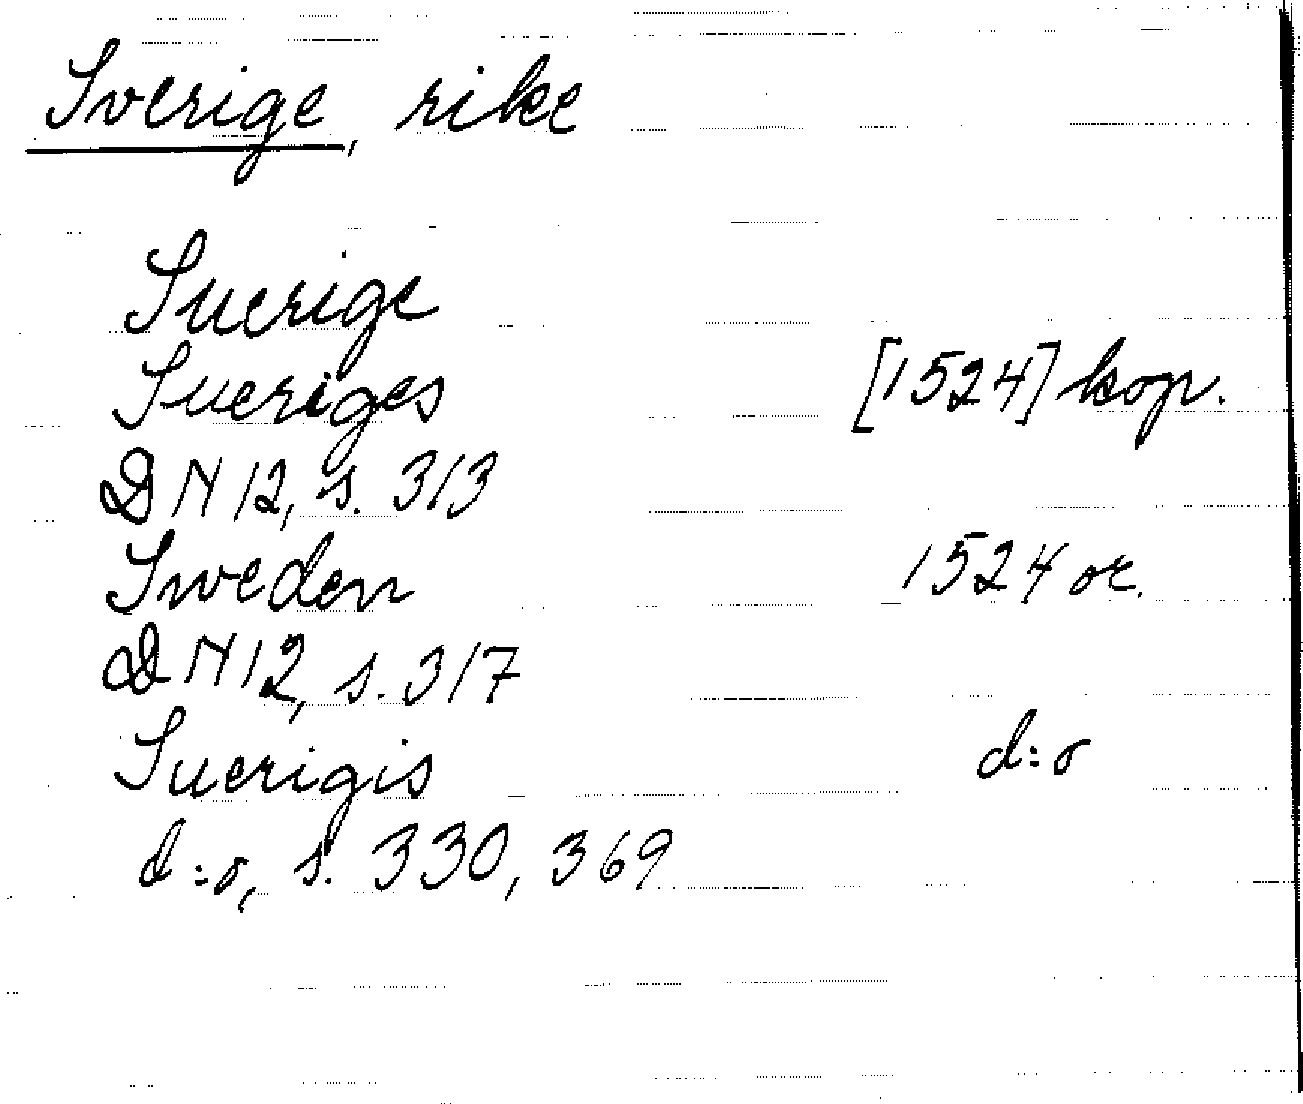 Sverige, rike
Suerige
Sueriges [1524] kop.
DN 12, s. 313
Sweden 1524 or.
DN 12, s. 317
Suerigis d:o
d:o, s. 330, 369